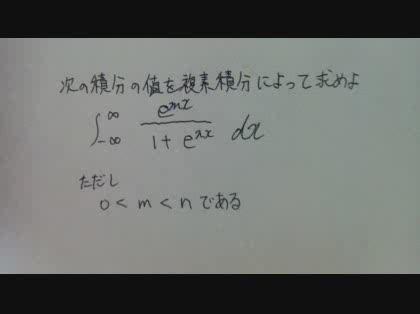 次の積分の値を複素積分によって求めよ
∫_{-∞}^{∞} \frac{e^{mx}}{1+e^{nx}} dx
ただし
0 < m < n である